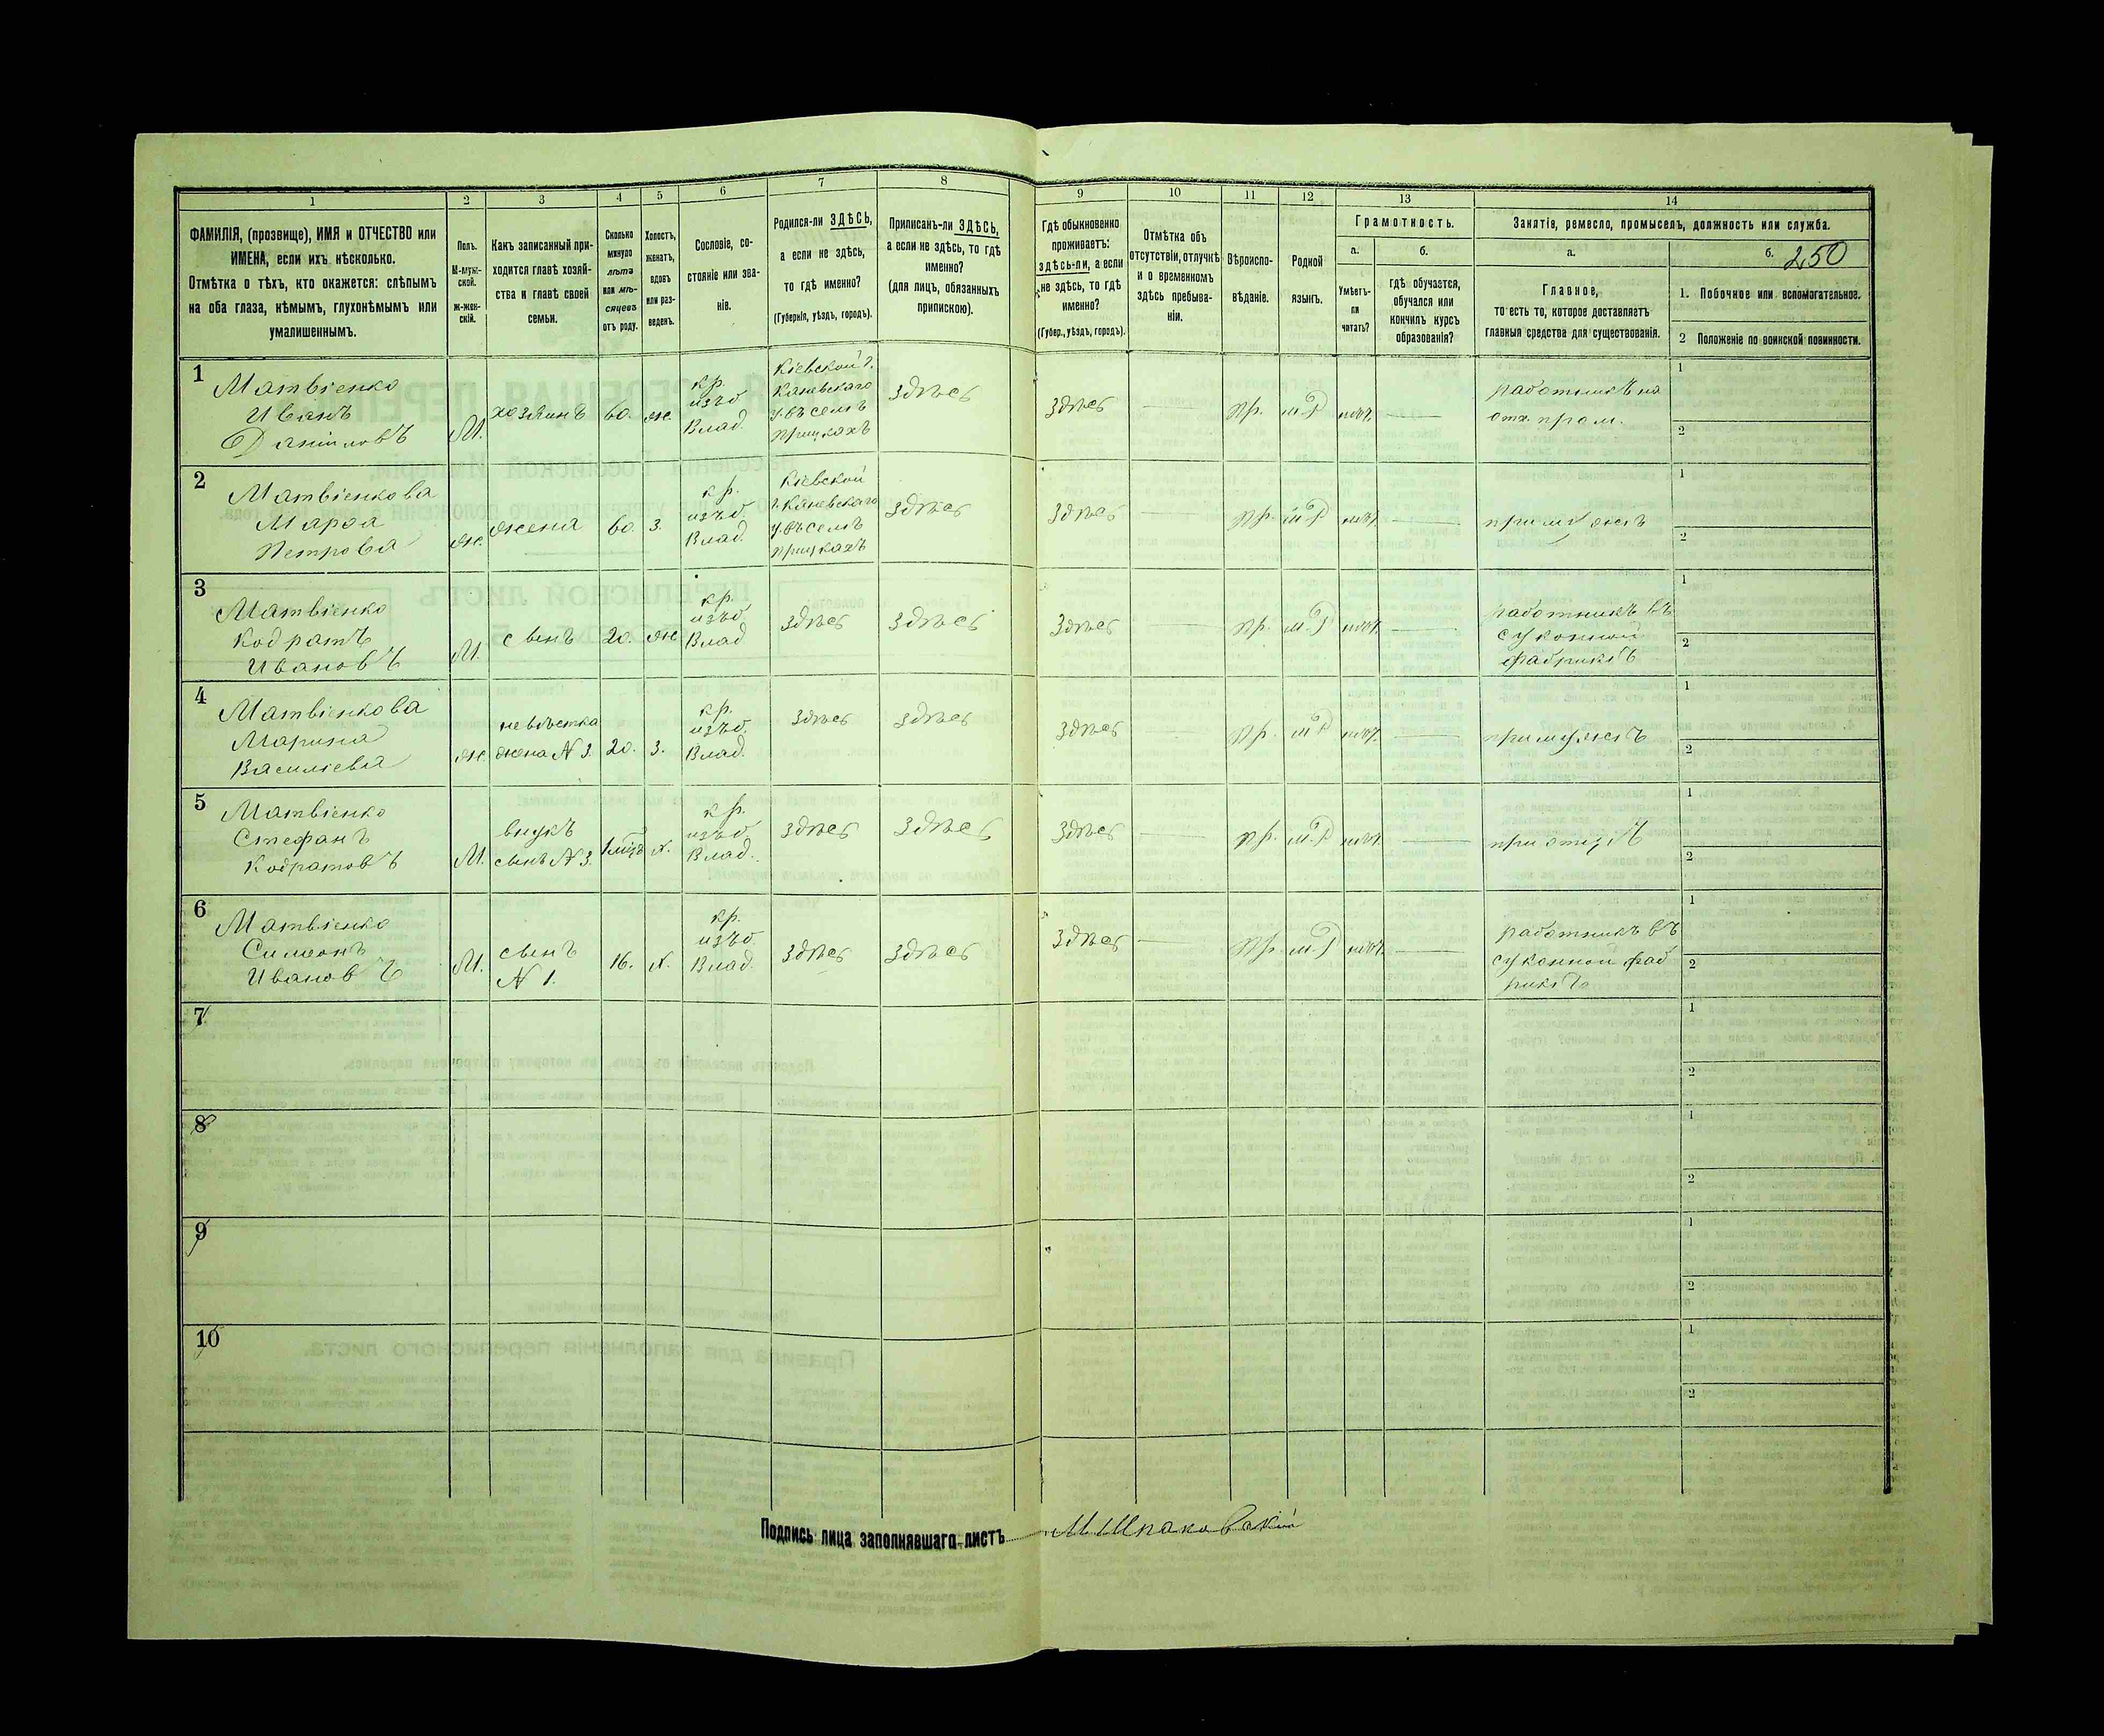 1 2 3 4 5 6 7 8 9 10 11 12 13 14
ФАМИЛІЯ, (прозвище), ИМЯ и ОТЧЕСТВО или
ИМЕНА, если ихъ нѣсколько.
Отмѣтка о тѣхъ, кто окажется: слѣпымъ
на оба глаза, нѣмымъ, глухонѣмымъ или
умалишеннымъ.
Полъ.
М-муж-
ской.
ж-жен-
скій.
Какъ записанный при-
ходится главѣ хозяй-
ства и главѣ своей
семьи.
Сколько
минуло
лѣтъ
или мѣ-
сяцевъ
отъ роду.
Холостъ,
женатъ,
вдовъ
или раз-
веденъ.
Сословіе, со-
стояніе или зва-
ніе.
Родился-ли ЗДѢСЬ,
а если не здѣсь,
то гдѣ именно?
(Губернія, уѣздъ, городъ).
Приписанъ-ли ЗДѢСЬ,
а если не здѣсь, то гдѣ
именно?
(для лицъ, обязанныхъ
припискою).
Гдѣ обыкновенно
проживаетъ:
здѣсь-ли, а если
не здѣсь, то гдѣ
именно?
(Губер., уѣздъ, городъ).
Отмѣтка объ
отсутствіи, отлучкѣ
и о временномъ
здѣсь пребыва-
ніи.
Вѣроиспо-
вѣданіе.
Родной
языкъ.
Грамотность.
а.
Умѣетъ-
ли
читать?
б.
гдѣ обучается,
обучался или
кончилъ курсъ
образованія?
Занятія, ремесло, промыселъ, должность или служба.
а.
Главное,
то есть то, которое доставляетъ
главныя средства для существованія.
б.
250
1. Побочное или вспомогательное.
2 Положеніе по воинской повинности.
1
Матвіенко
Иванъ
Даніиловъ
М.
хозяинъ
60.
ж.
кр.
изъ б.
Влад.
Кіевской г.
Каневскаго
у. въ селѣ
Прицкахъ
Здѣсь
Здѣсь
Пр.
м.р
нѣт.
работникъ на
отх. пром.
1
2
2
Матвіенкова
Марѳа
Петрова
ж.
жена
60.
З.
кр.
изъ б.
Влад.
Кіевской
г. Каневскаго
у. въ селѣ
Прицкахъ
Здѣсь
Здѣсь
Пр.
м.р
нѣт.
при мужѣ
1
2
3
Матвіенко
Кодратъ
Ивановъ
М.
сынъ
20.
ж.
кр.
изъ б.
Влад
Здѣсь
Здѣсь
Здѣсь
Пр.
м.р
нѣт.
работникъ въ
суконной
фабрикѣ
1
2
4
Матвіенкова
Марина
Василіева
ж.
невѣстка
жена N 3.
20.
З.
кр.
изъ б.
Влад.
Здѣсь
Здѣсь
Здѣсь
Пр.
м.р
нѣт.
при мужѣ
1
2
5
Матвіенко
Стефанъ
Кодратовъ
М.
внукъ
сынъ N 3.
х.
кр.
изъ б.
Влад.
Здѣсь
Здѣсь
Здѣсь
Пр.
м.р
нѣт.
при отцѣ
1
2
6
Матвіенко
Симеонъ
Ивановъ
М.
сынъ
N 1.
16.
х.
кр.
изъ б.
Влад.
Здѣсь
Здѣсь
Здѣсь
Пр.
м.р
нѣт.
работникъ въ
суконной фаб
рикѣ
1
2
7
1
2
8
1
2
9
1
2
10
1
2
Подпись лица заполнявшаго листъ
М Шпаковскій